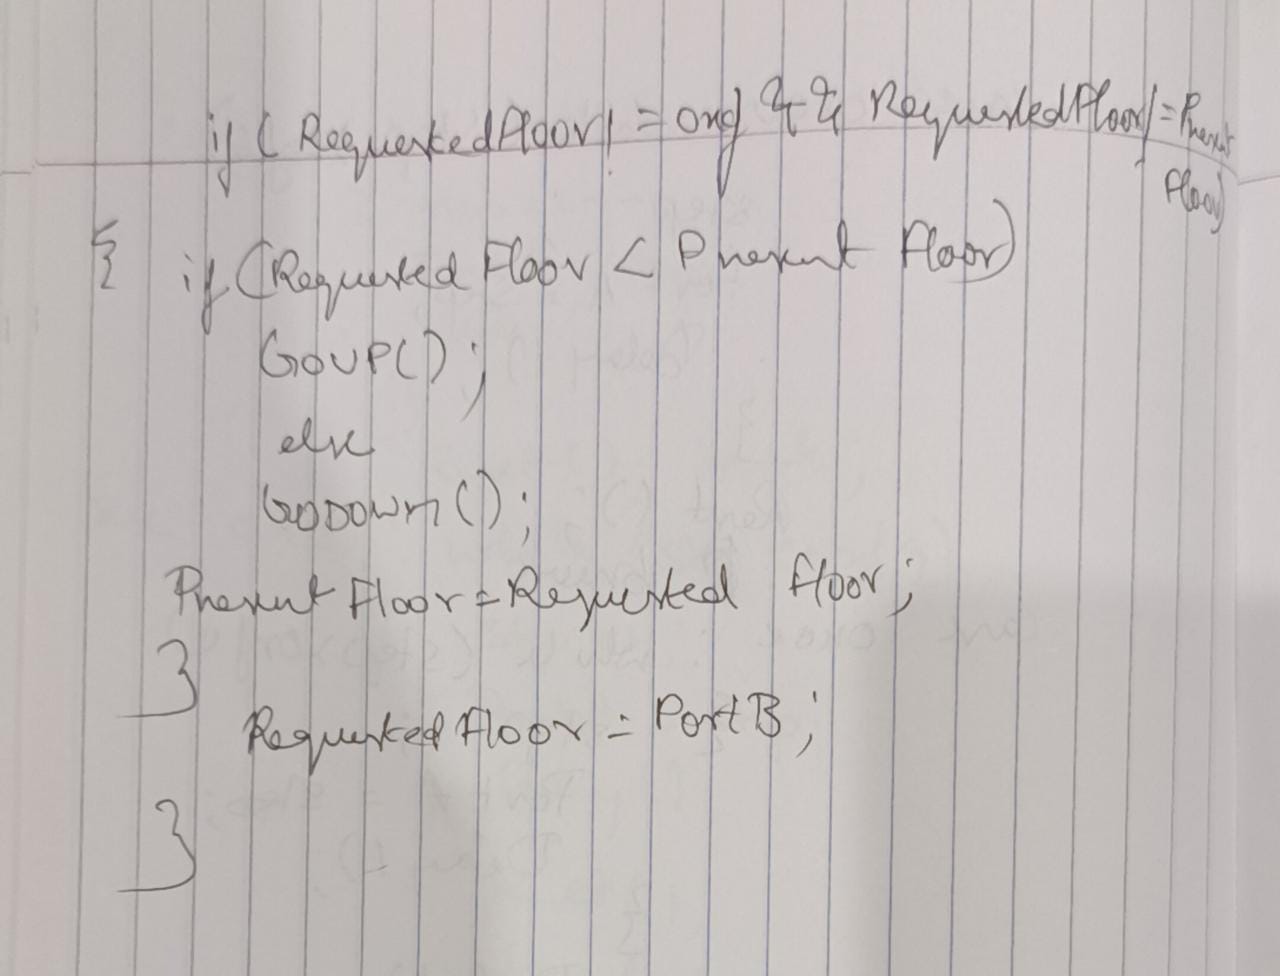 if ( RequestedFloor != org && RequestedFloor != Present
Floor)
{ if (Requested Floor < Present Floor)
GOUP();
else
GODOWN();
Present Floor = Requested floor;
}
Requested floor = Port B;
}